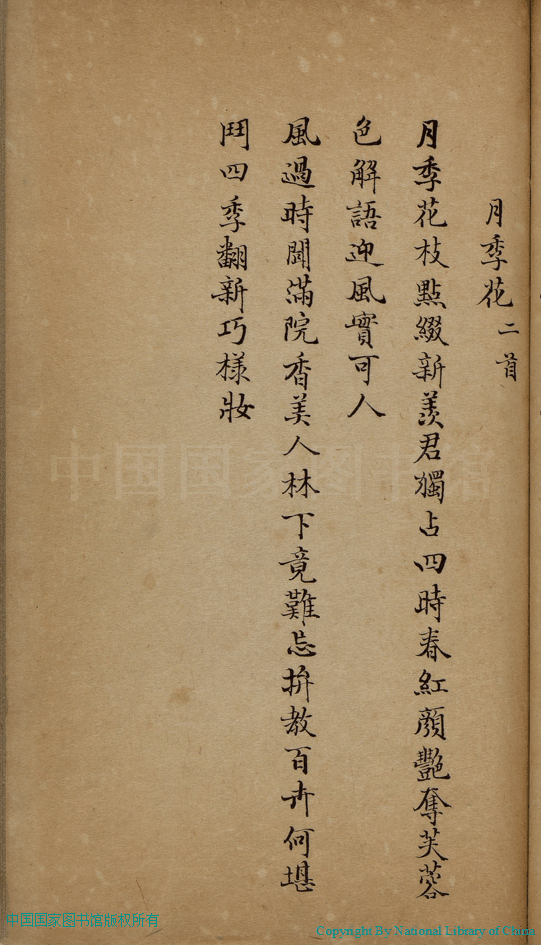 月季花二首
月季花枝點綴新羨君獨占四時春紅顏艷奪芙蓉
色解語迎風實可人
風過時聞滿院香美人林下竟難忘拚教百卉何堪
鬥四季翻新巧樣妝
中国国家图书馆
中国国家图书馆版权所有
Copyright By National Library of China